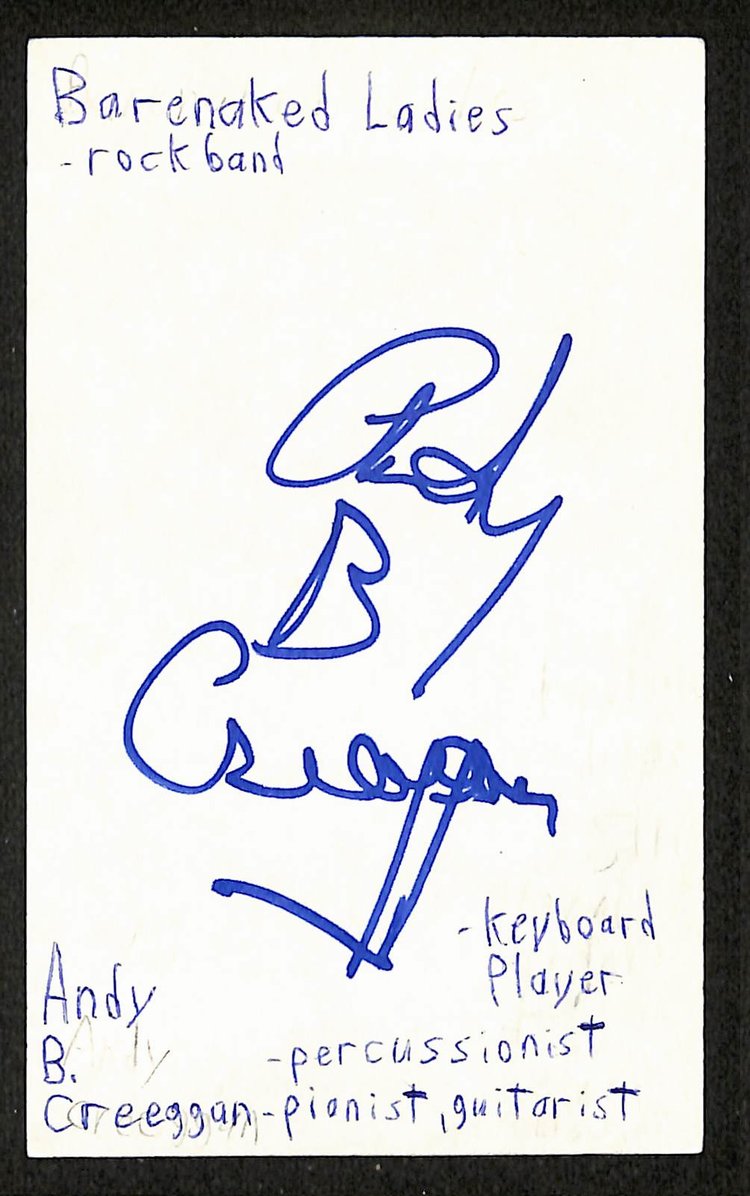 Barenaked Ladies
- rock band
Andy
B
Creeggan
- keyboard
Player
Andy
B.
- percussionist
Creeggan - pianist, guitarist